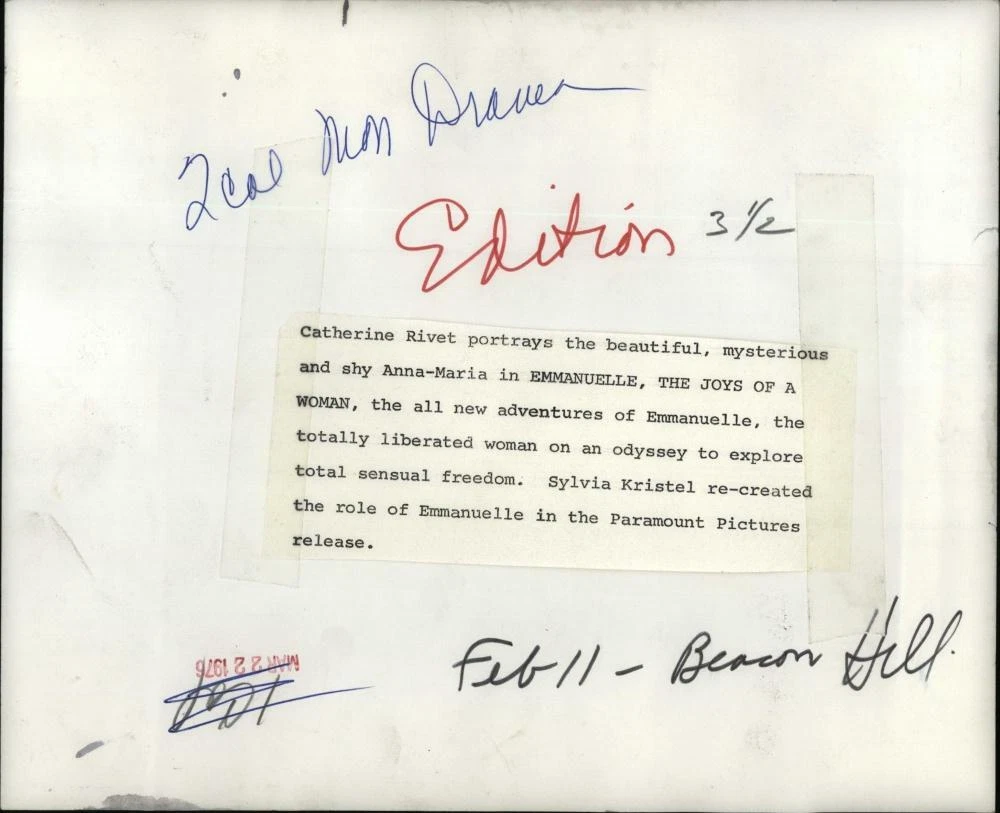 2 col Mon
Edition 3 1/2
Catherine Rivet portrays the beautiful, mysterious
and shy Anna-Maria in EMMANUELLE, THE JOYS OF A
WOMAN, the all new adventures of Emmanuelle, the
totally liberated woman on an odyssey to explore
total sensual freedom. Sylvia Kristel re-created
the role of Emmanuelle in the Paramount Pictures
release.
MAR 22 1976
Feb 11 - Beacon Hill.